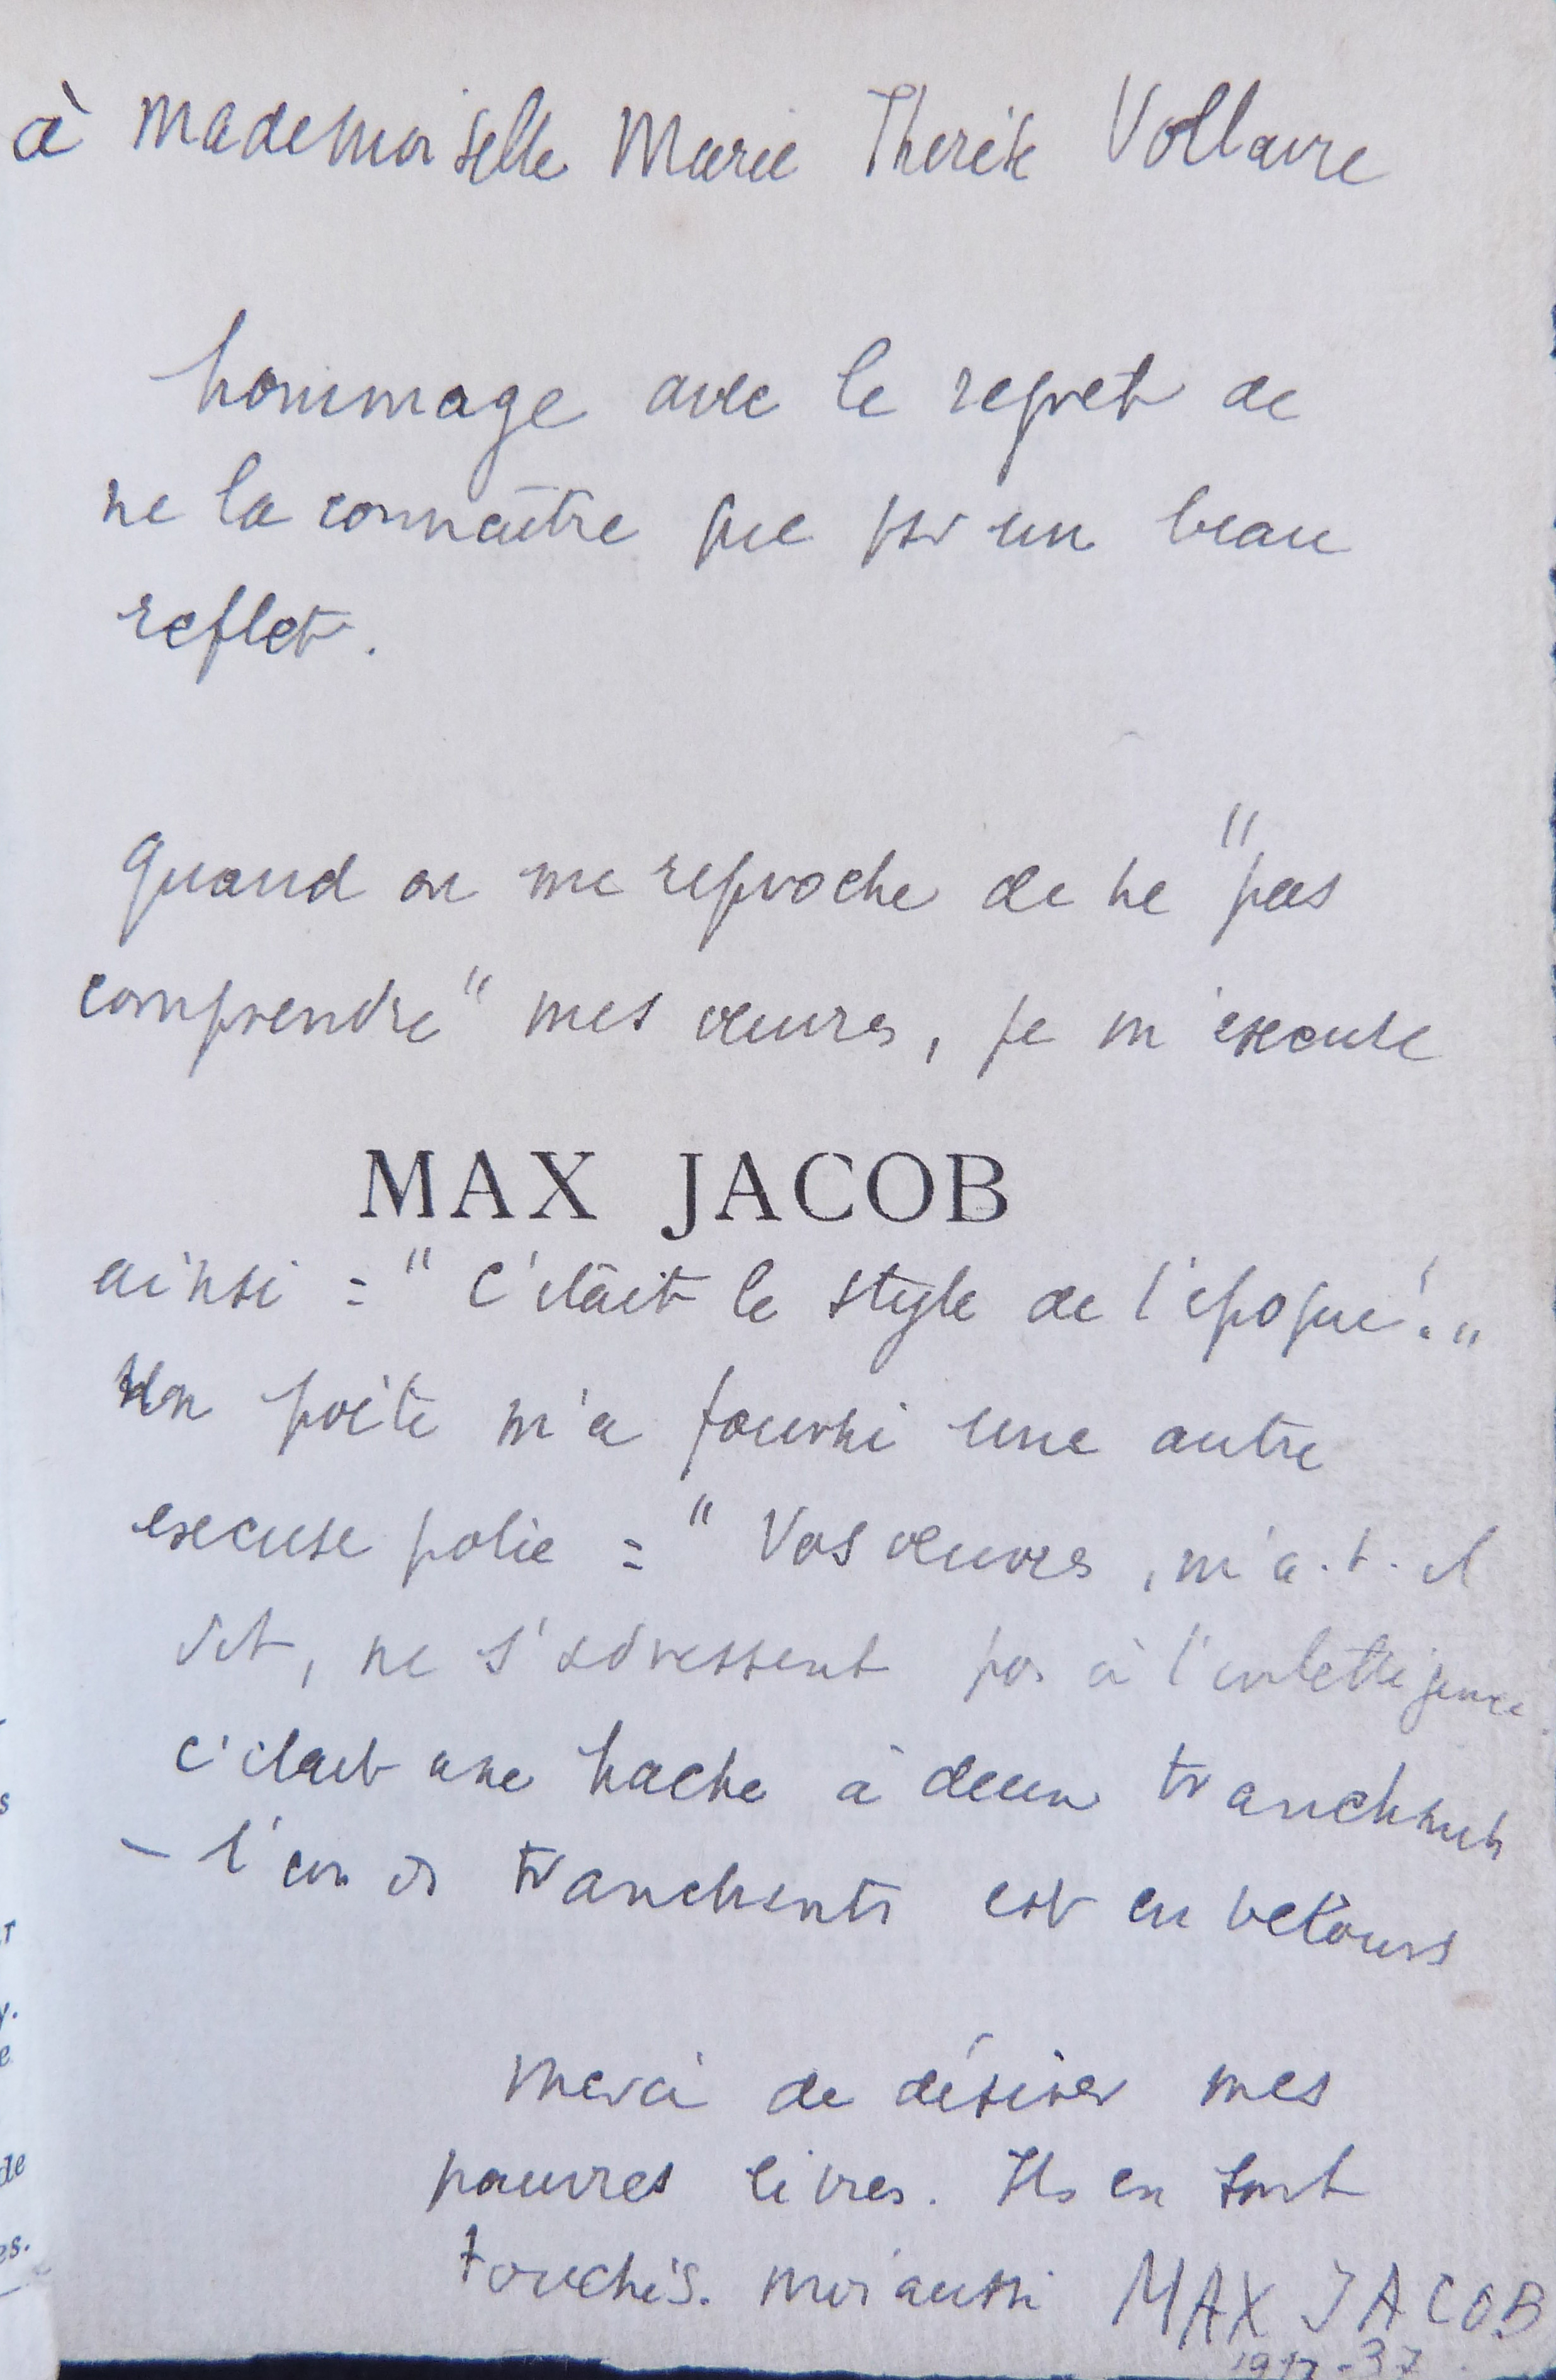 à Mademoiselle Marie Therèse Vollaire
hommage avec le regret de
ne la connaître que par un beau
reflet.
Quand on me reproche de ne "pas
comprendre" mes œuvres, je m'excuse
MAX JACOB
ainsi = "C'était le style de l'époque!"
Un poète m'a fourni une autre
excuse polie = "Vos œuvres, m'a-t-il
dit, ne s'adressent pas à l'intelligence.
C'était une hache à deux tranchants
– l'un des tranchants est en velours
Merci de désirer mes
pauvres livres. Ils en sont
touchés. Moi aussi MAX JACOB
1917-37